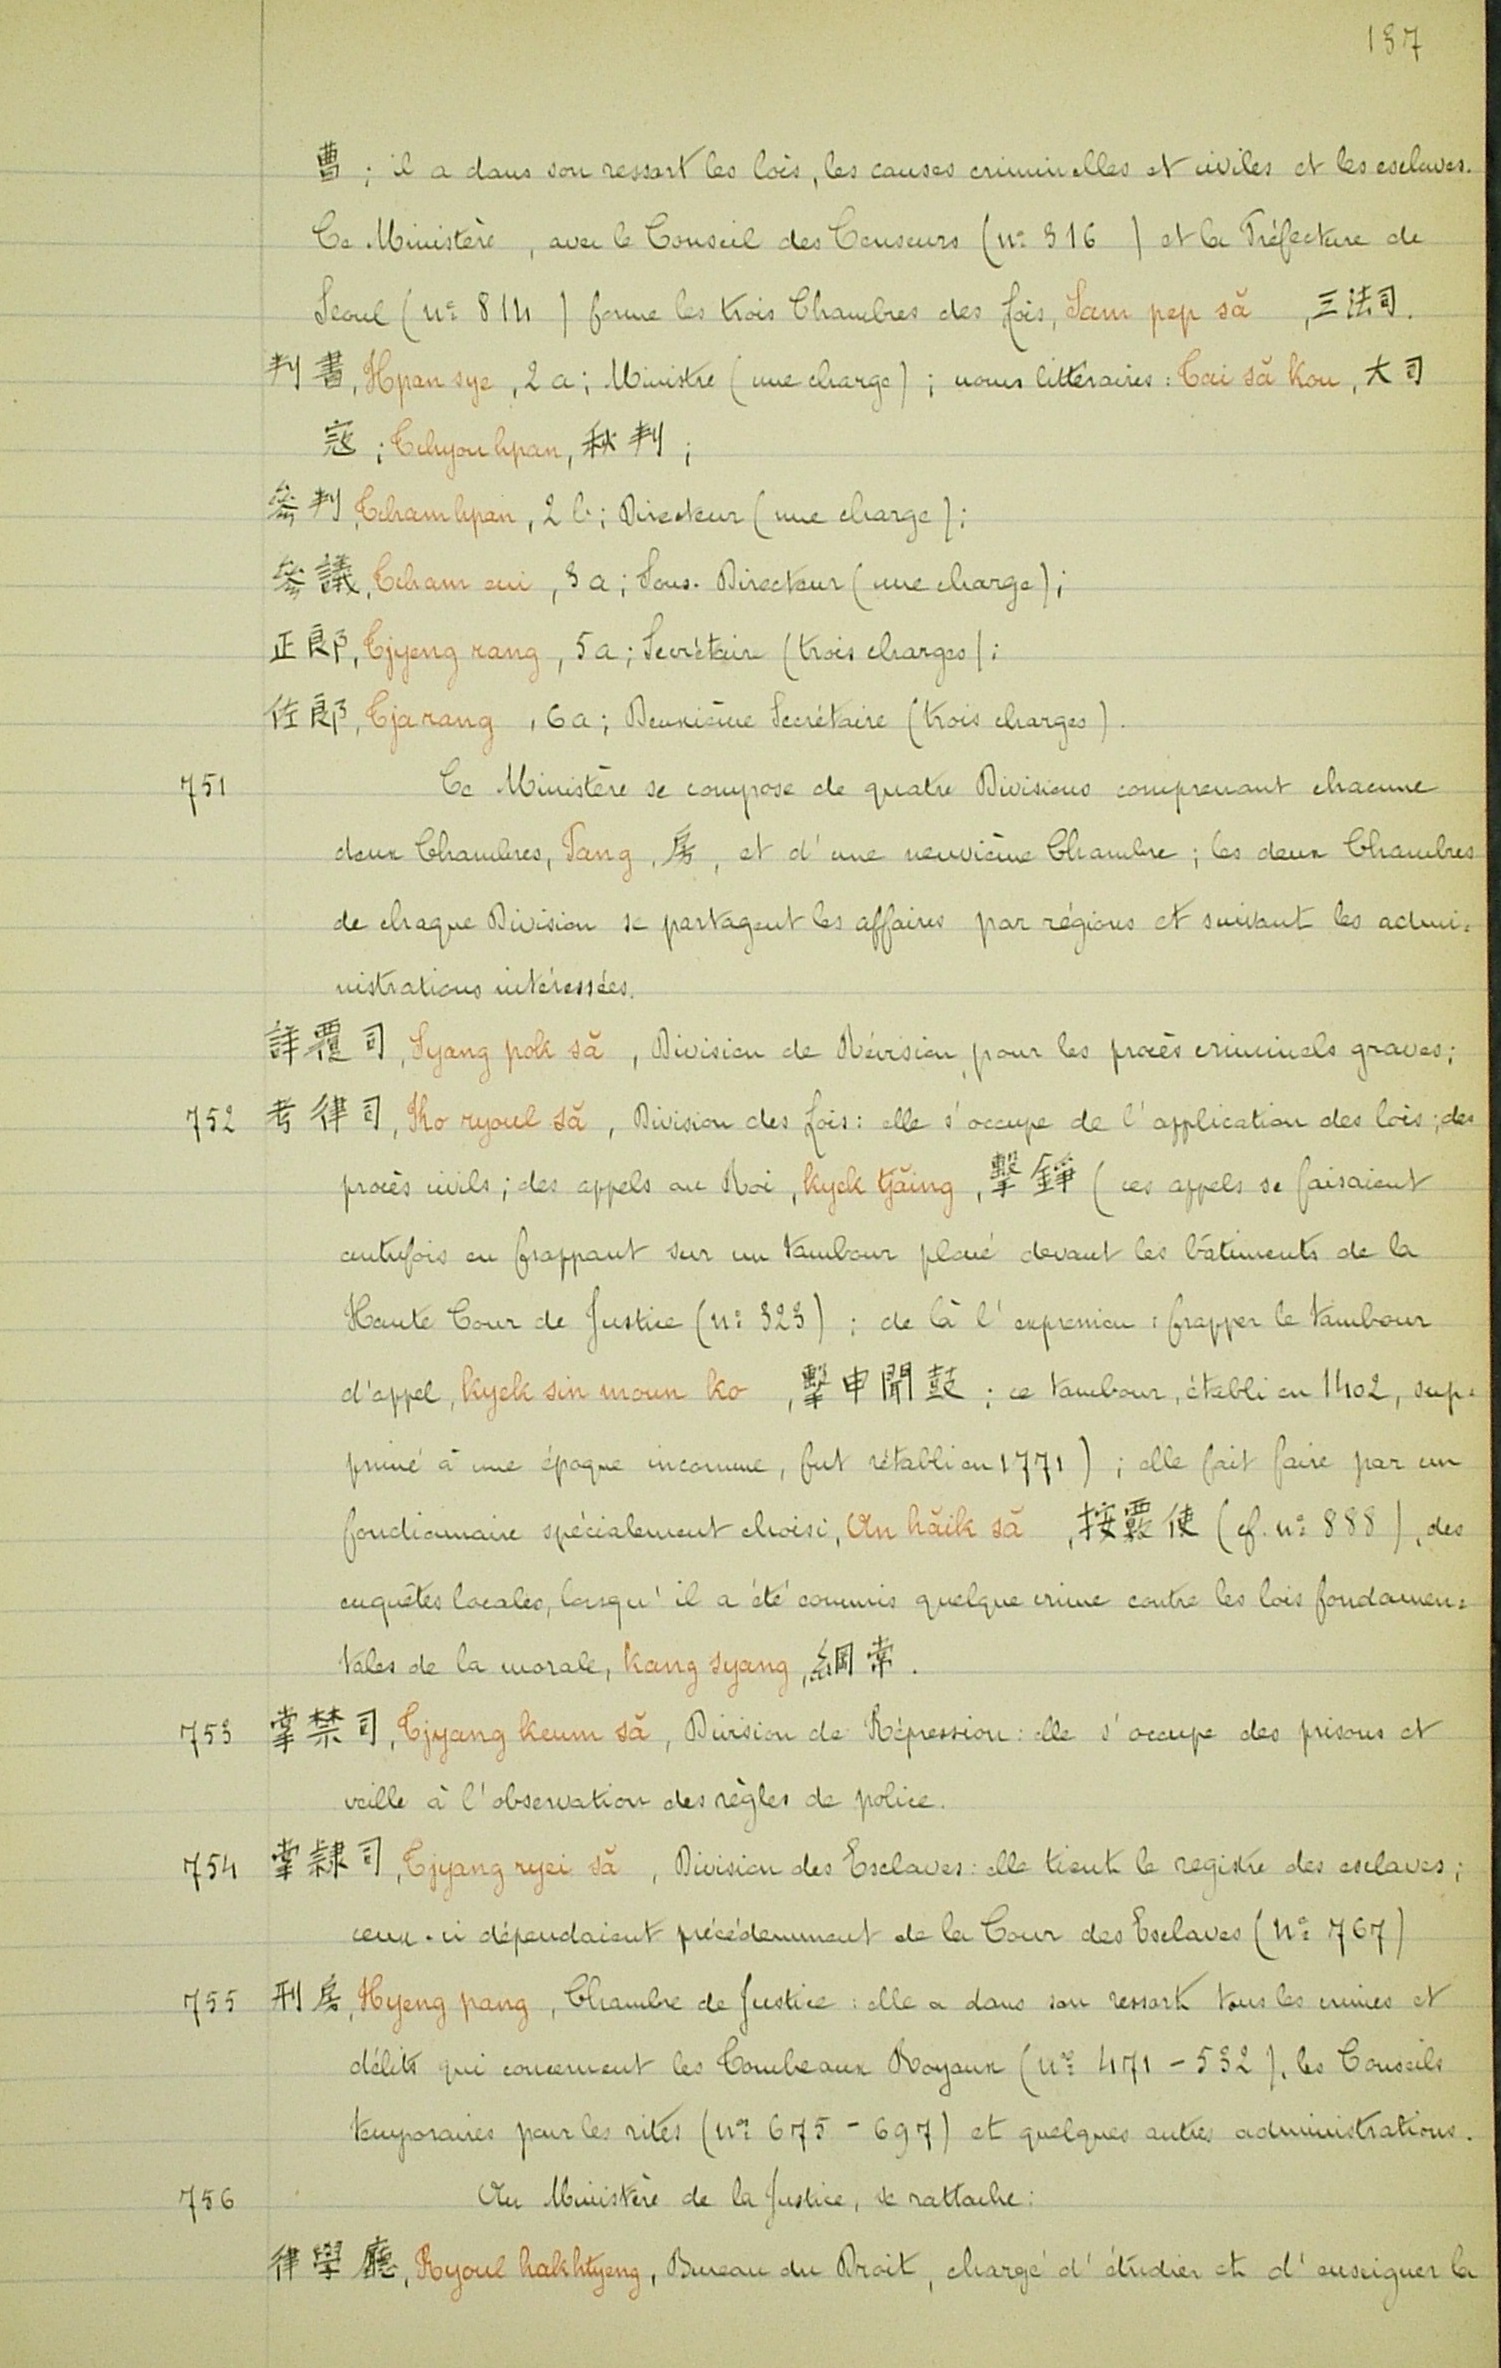 137
曹; il a dans son ressort les lois, les causes criminelles et civiles et les esclaves.
Ce Ministère, avec le Conseil des Censeurs (nº 316 ) et la Préfecture de
Seoul (nº 814 ) forme les trois Chambres des Lois, Sam pep să ,三法司.
判書, Hpan sye, 2 a; Ministre (une charge); noms littéraires: Tai să kou, 大司
寇; Tchyou hpan, 秋判;
參判, Tcham hpan, 2 b; Directeur (une charge);
參議, Tcham eui, 3 a; Sous-Directeur (une charge);
正郎, Tjyeng rang, 5 a; Secrétaire (trois charges);
佐郎, Tja rang, 6 a; Deuxième Secrétaire (trois charges).
751 Ce Ministère se compose de quatre Divisions comprenant chacune
deux Chambres, Pang, 房, et d'une neuvième Chambre; les deux Chambres
de chaque Division se partagent les affaires par régions et suivant les admi=
nistrations intéressées.
詳覆司, Syang pok să, Division de Révision, pour les procès criminels graves;
752 考律司, Ko ryoul să, Division des Lois: elle s'occupe de l'application des lois; des
procès civils; des appels au Roi, kyek tjăing, 擊錚 (ces appels se faisaient
autrefois en frappant sur un tambour placé devant les bâtiments de la
Haute Cour de Justice (nº 323); de là l'expression: frapper le tambour
d'appel, kyek sin moun ko, 擊申聞鼓; ce tambour, établi en 1402, sup=
primé à une époque inconnue, fut rétabli en 1771); elle fait faire par un
fonctionnaire spécialement choisi, An hăik să, 按覈使 (cf. nº 888), des
enquêtes locales, lorsqu'il a été commis quelque crime contre les lois fondamen=
tales de la morale, kang syang, 綱常.
753 掌禁司, Tjyang keum să, Division de Répression: elle s'occupe des prisons et
veille à l'observation des règles de police.
754 掌隸司, Tjyang ryei să, Division des Esclaves: elle tient le registre des esclaves;
ceux-ci dépendaient précédemment de la Cour des Esclaves (nº 767)
755 刑房, Hyeng pang, Chambre de Justice: elle a dans son ressort tous les crimes et
délits qui concernent les Tombeaux Royaux (nos 471 - 532), les Conseils
temporaires pour les rites (nos 675 - 697) et quelques autres administrations.
756 Au Ministère de la Justice, se rattache:
律學廳, Ryoul hak htyeng, Bureau du Droit, chargé d'étudier et d'enseigner la